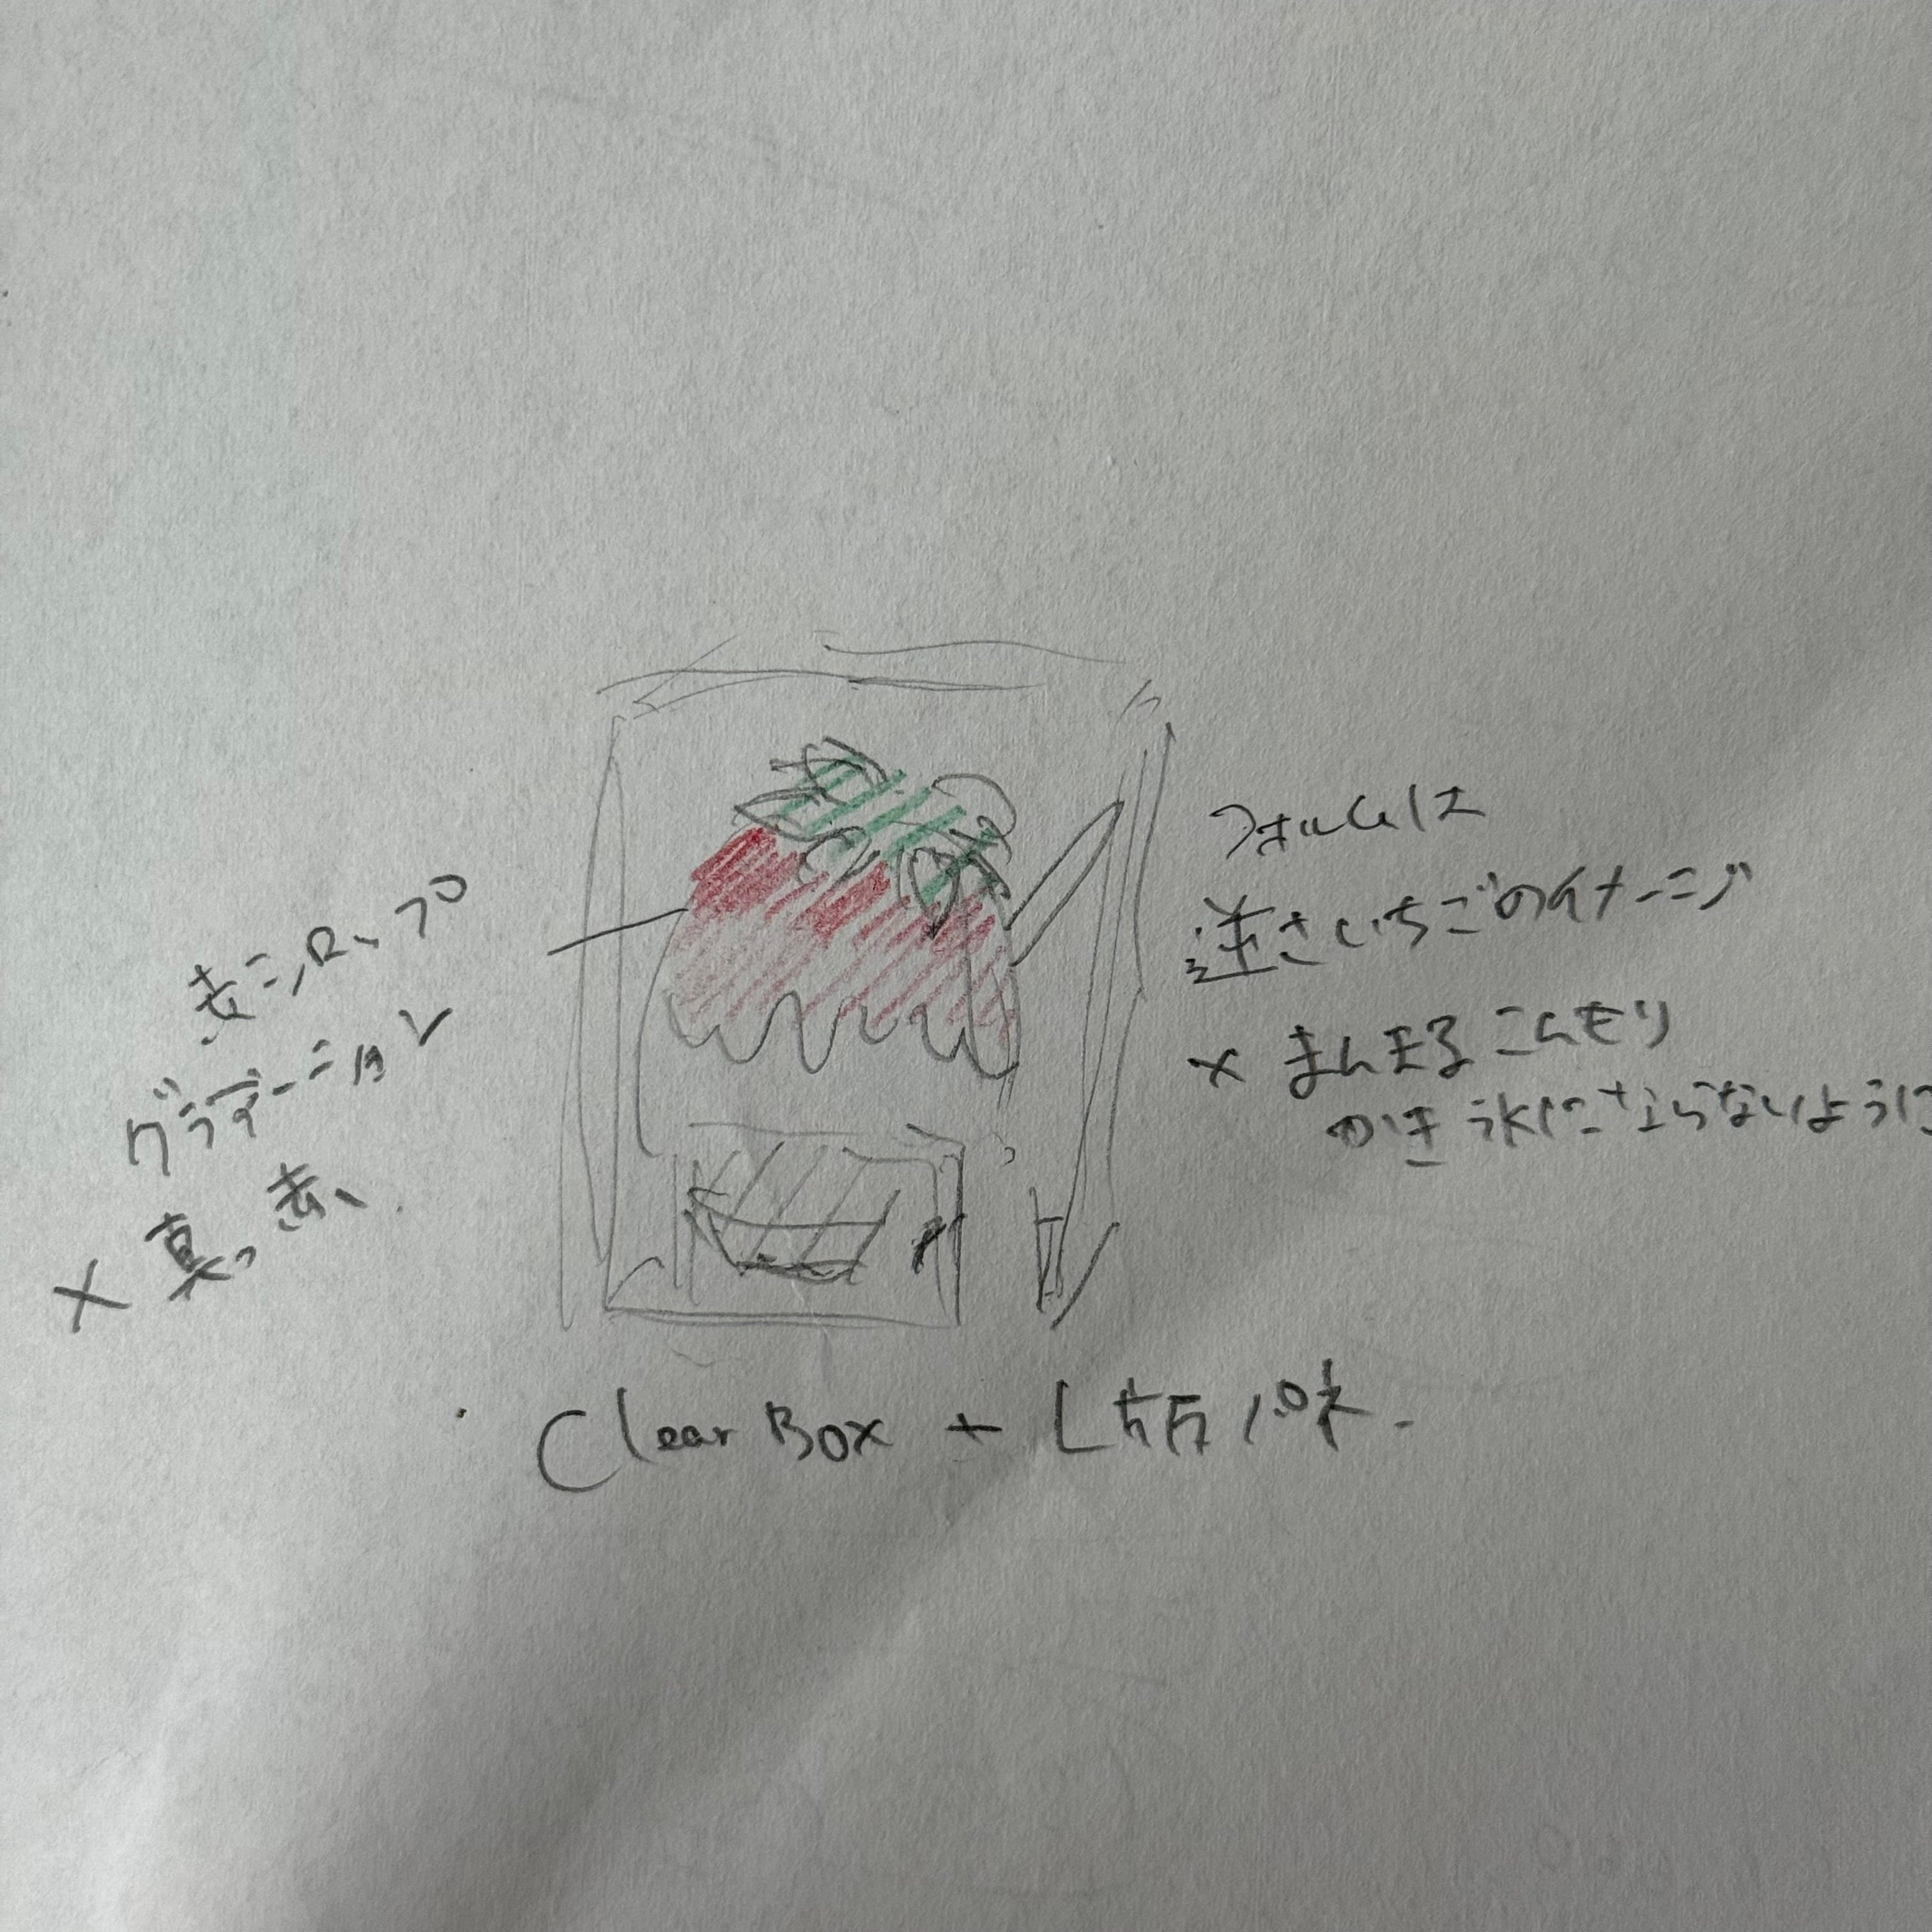 赤シロップ
グラデーション
× 真っ赤、
フォルムは
逆さいちごのイメージ
× まんまるこんもり
かき氷にならないように
・Clear Box +